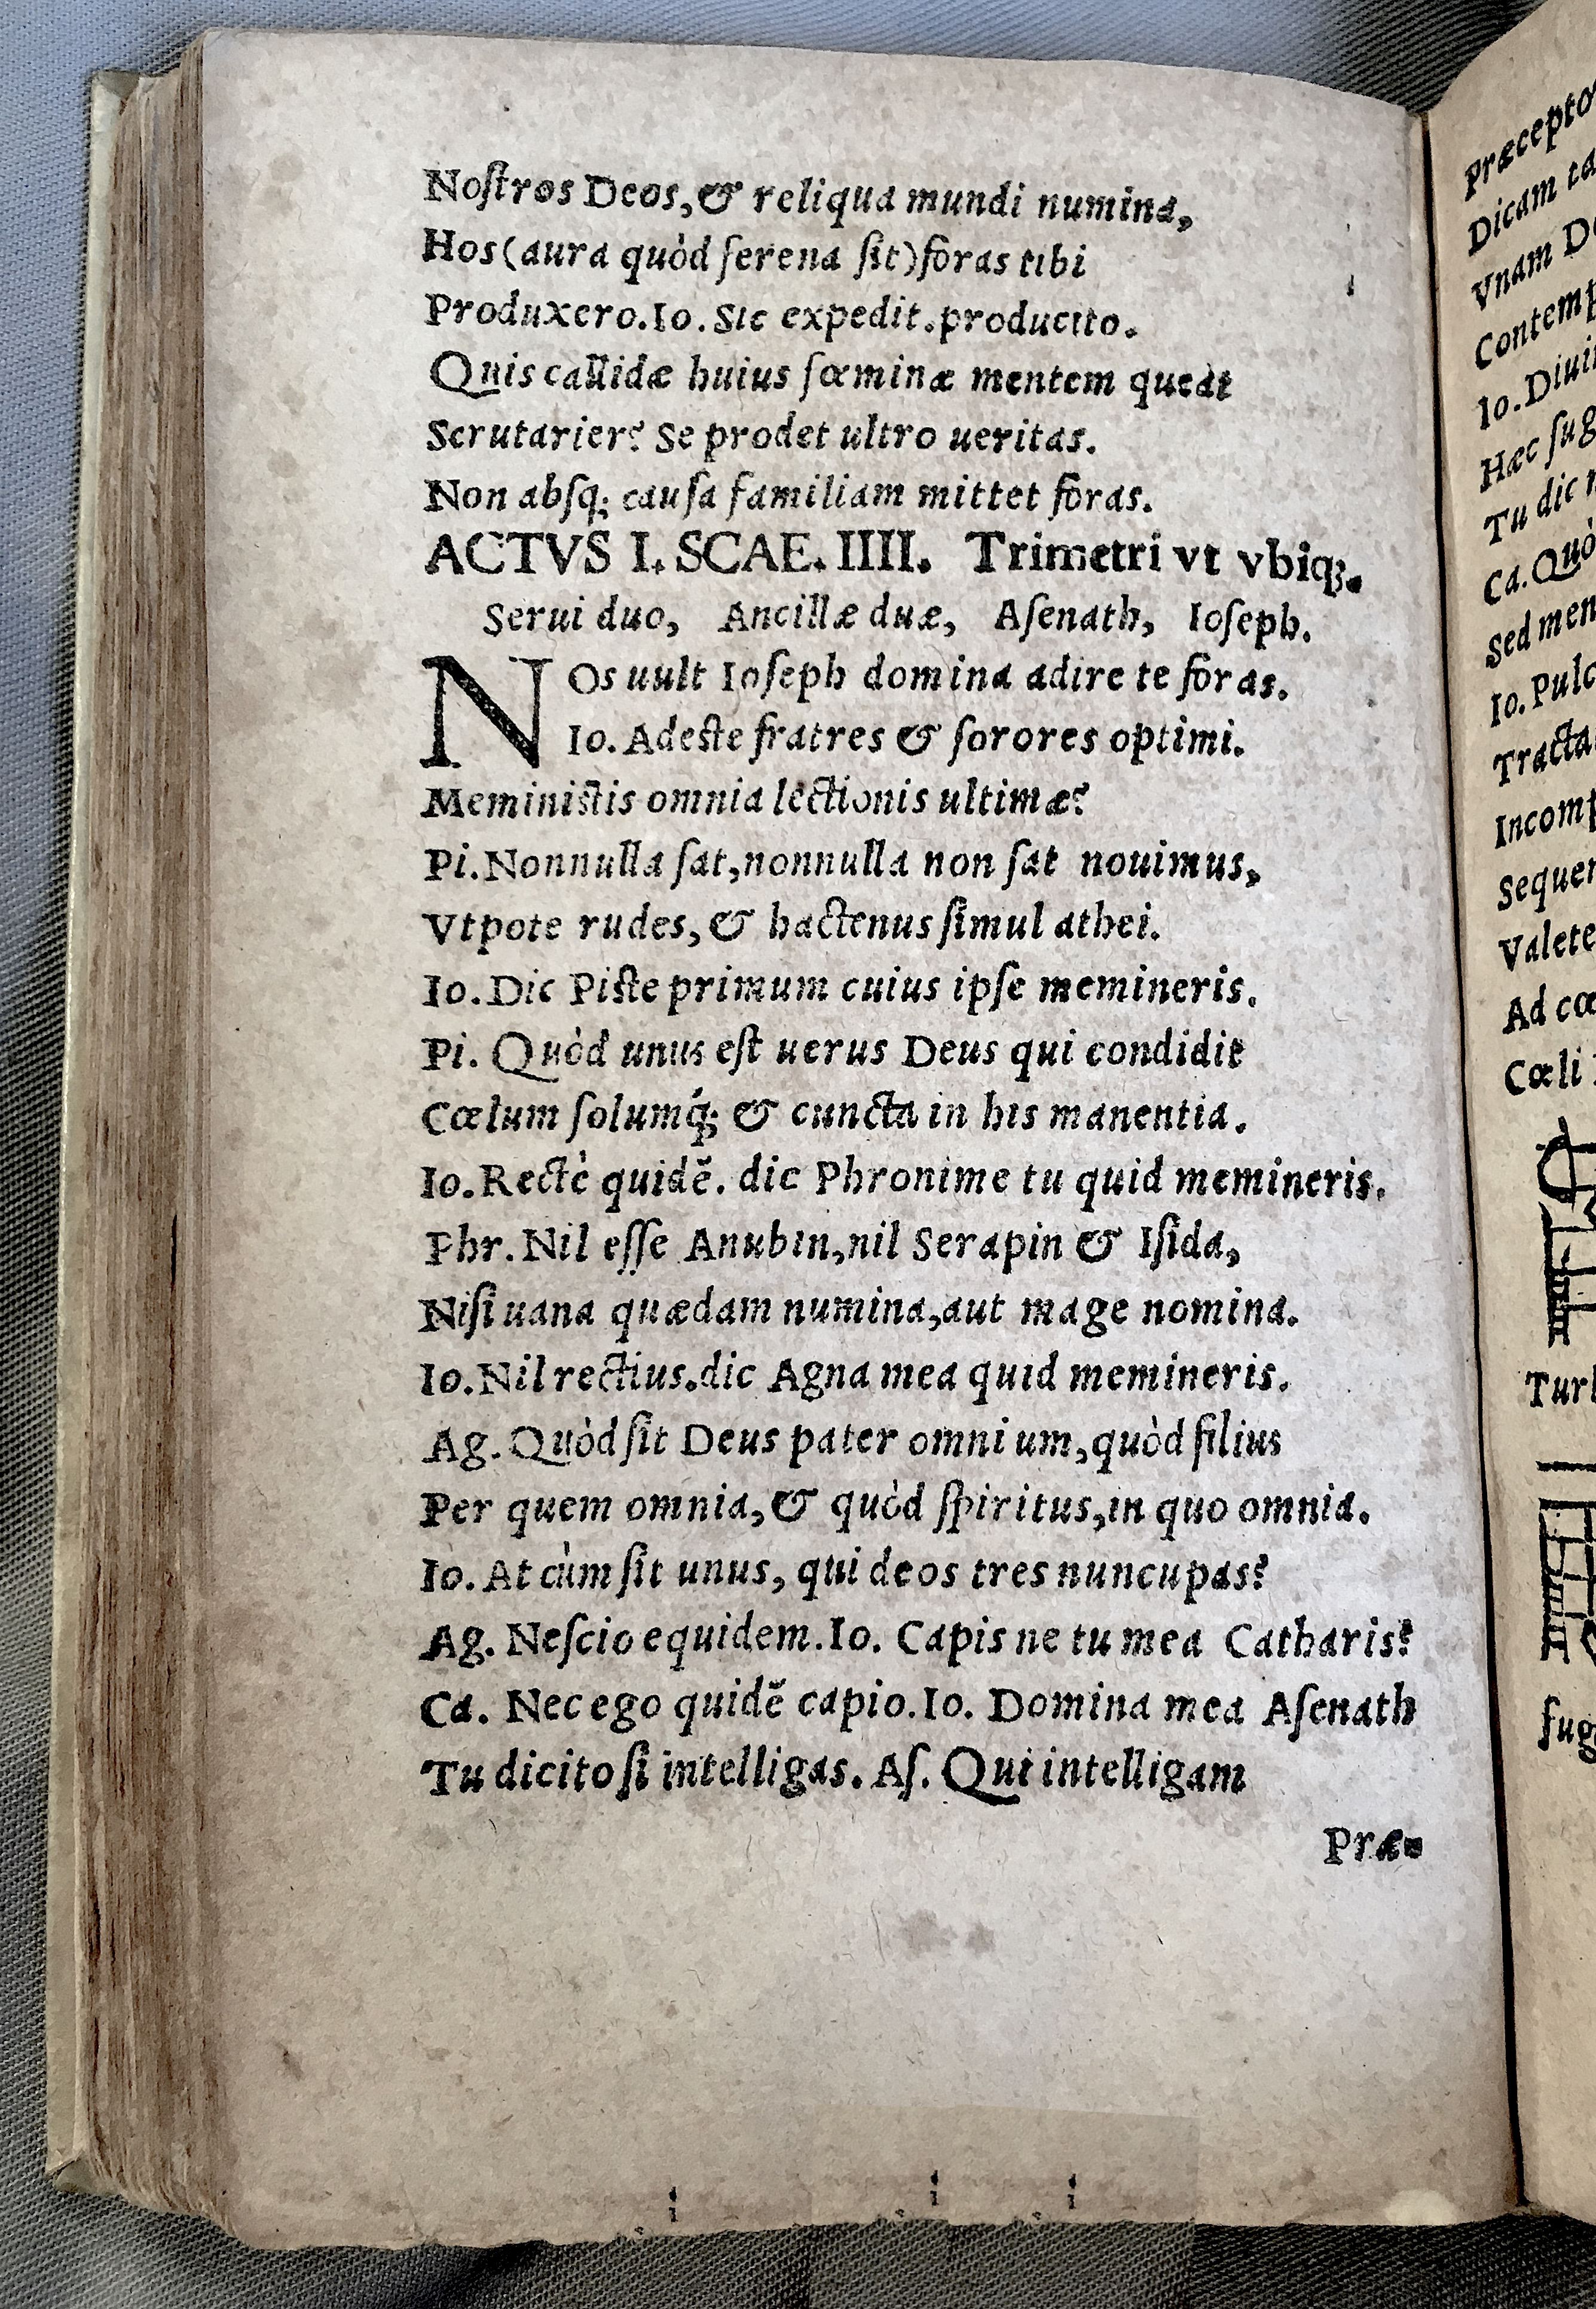 Noſtros Deos, & reliqua mundi numina,
Hos (aura quòd ſerena ſit) foras tibi
Produxero. Io. Sic expedit. producito.
Quis callidæ huius fœminæ mentem queat
Scrutarier? Se prodet ultro ueritas.
Non abſq; cauſa familiam mittet foras.
ACTVS I. SCAE. IIII. Trimetri vt vbiq;.
Serui duo, Ancillæ duæ, Aſenath, Ioſeph.
NOs uult Ioſeph domina adire te foras.
Io. Adeſte fratres & ſorores optimi.
Meminiſtis omnia lectionis ultimæ?
Pi. Nonnulla ſat, nonnulla non ſat nouimus,
Vtpote rudes, & hactenus ſimul athei.
Io. Dic Piſte primum cuius ipſe memineris.
Pi. Quòd unus eſt uerus Deus qui condidit
Cœlum ſolumq́; & cuncta in his manentia.
Io. Rectè quidẽ. dic Phronime tu quid memineris.
Phr. Nil eſſe Anubin, nil Serapin & Iſida,
Niſi uana quædam numina, aut mage nomina.
Io. Nil rectius. dic Agna mea quid memineris.
Ag. Quòd ſit Deus pater omnium, quòd filius
Per quem omnia, & quòd ſpiritus, in quo omnia.
Io. At cùm ſit unus, qui deos tres nuncupas?
Ag. Neſcio equidem. Io. Capis ne tu mea Catharis?
Ca. Nec ego quidẽ capio. Io. Domina mea Aſenath
Tu dicito ſi intelligas. Aſ. Qui intelligam
Præ-
Dicam
Vnam
Io.
Hæc
Tu dic
Ca.
Sed
Io.
Valete
Ad
Cœli